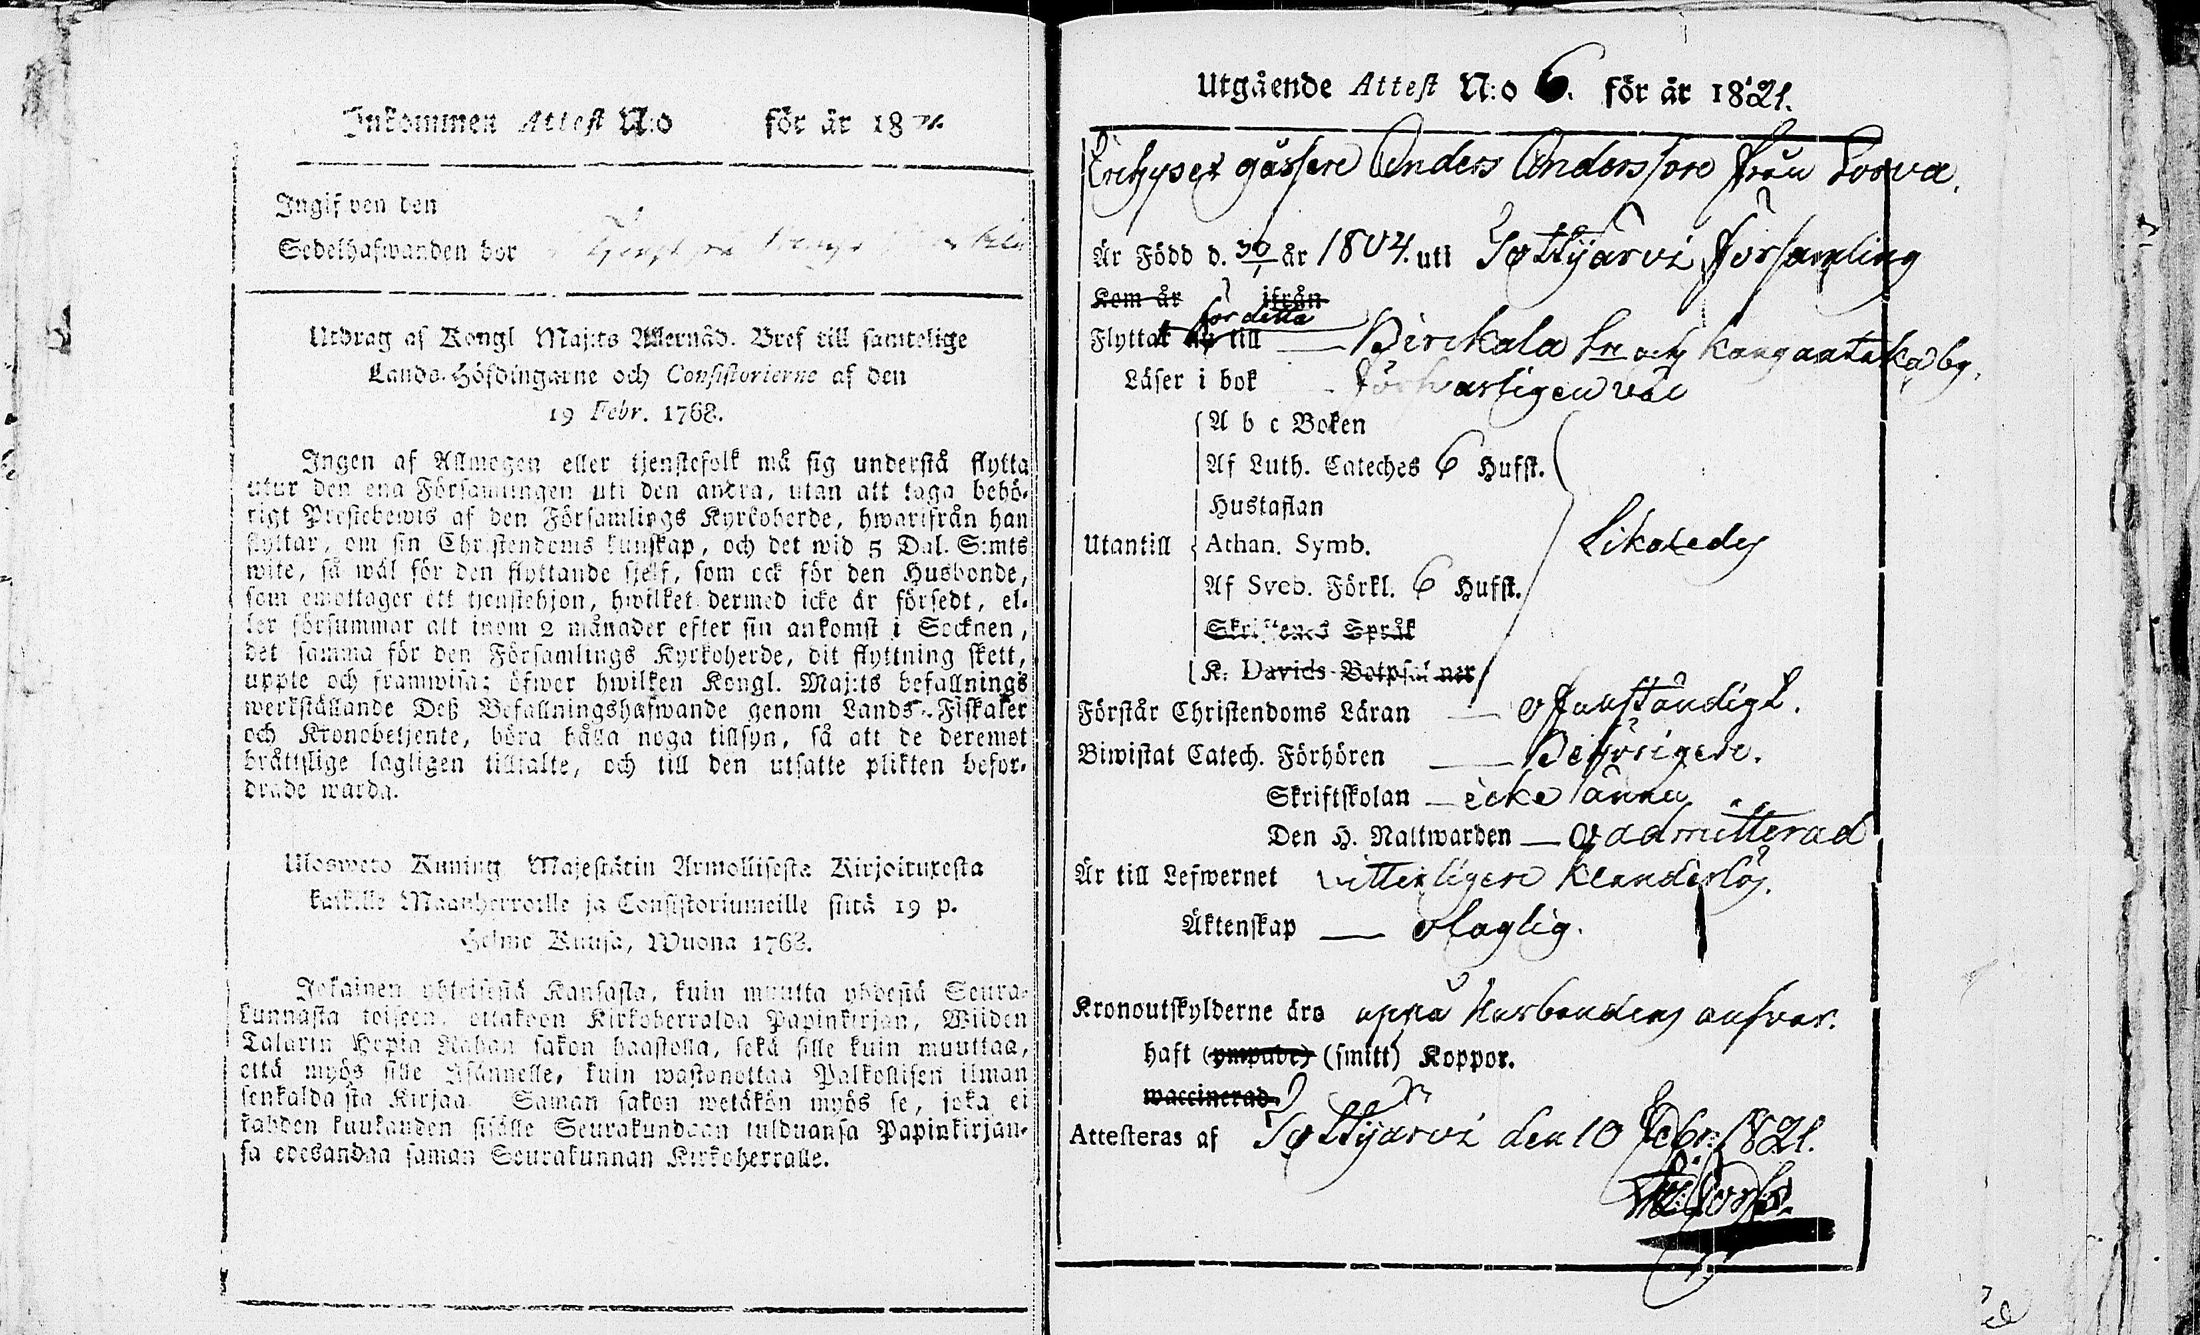 Inkommen Attest N:o för år 1821.
Ingifven den
Sedelhafwanden bor
Utdrag af Kongl Maj:ts Allernåd. Bref till samtelige
Lands-Höfdingarne och Consistorierne af den
19 Febr. 1768.
Ingen af Allmogen eller tjenstefolk må sig understå flytta
utur den ena Församlingen uti den andra, utan att taga behö-
rigt Prestebewis af den Församlings Kyrkoherde, hwarifrån han
flyttar, om sin Christendoms kunskap, och det wid 5 Dal. S:mts
wite, så wäl för den flyttande sjelf, som ock för den Husbonde,
som emottager ett tjenstehjon, hwilket dermed icke är försedt, el-
ler försummar att inom 2 månader efter sin ankomst i Socknen,
det samma för den Församlings Kyrkoherde, dit flyttning skett,
uppte och framwisa; öfwer hwilken Kongl. Maj:ts befallnings
werkställande Deß Befallningshafwande genom Lands-Fiskaler
och Kronobetjente, böra hålla noga tillsyn, så att de deremot
bråttslige lagligen tilltalte, och till den utsatte plikten befor-
drade warda.
Ulosweto Kuning Majestätin Armollisesta Kirjoituxesta
kaikille Maanherroille ja Consistoriumeille siitä 19 p.
Helme Kuusa, Wuona 1768.
Jokainen yhteisestä Kansasta, kuin muutta yhdestä Seura-
kunnasta toiseen, ottakoon Kirkoherralda Papinkirjan, Wiiden
Talarin Hopia Rahan sakon haastolla, sekä sille kuin muuttaa,
että myös sille Isännelle, kuin wastanottaa Palkollisen ilman
senkaldasta Kirjaa. Saman sakon wetäkön myös se, joka ei
kahden kuukauden sisälle Seurakundaan tulduansa Papinkirjan-
sa edesandaa saman Seurakunnan Kirkoherralle.
Utgående Attest N:o 6. för år 1821.
gåssen Anders Andersson från Sorva.
Är Född d. 30/1 år 1804. uti Tottijärvi församling
Kom år ifrån
för detta
Flyttat nu till Birckala Sn och Kangantaka by.
Läser i bok försvarligen väl
A b c Boken
Af Luth. Cateches 6 Hufst.
Hustaflan
Utantill Athan. Symb. Likaledes
Af Sveb. Förkl. 6 Hufst.
Skriftenes Språk
K. Davids Botpsalmer
Förstår Christendoms Läran ofullständigt.
Biwistat Catech. Förhören Behörigen.
Skriftskolan icke ännu
Den H. Nattwarden oadmitterad
Är till Lefwernet vitterligen klanderlös.
Äktenskap olaglig.
Kronoutskylderne äro uppå Husbondens ansvar.
haft (ympade) (smitt) Koppor.
waccinerad.
Attesteras af Tottijärvi den 10 Febr. 1821.